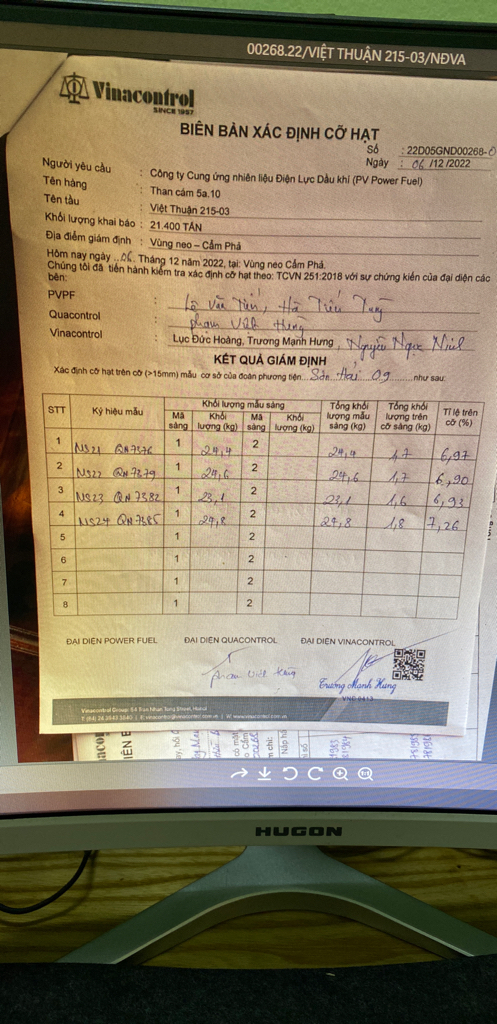 00268.22/VIỆT THUẬN 215-03/NĐVA
Vinacontrol
SINCE 1957
BIÊN BẢN XÁC ĐỊNH CỠ HẠT
Số : 22D05GND00268-0
Ngày : 06/12/2022
Người yêu cầu : Công ty Cung ứng nhiên liệu Điện Lực Dầu khí (PV Power Fuel)
Tên hàng : Than cám 5a.10
Tên tàu : Việt Thuận 215-03
Khối lượng khai báo : 21.400 TẤN
Địa điểm giám định : Vùng neo – Cẩm Phả
Hôm nay ngày ..06. Tháng 12 năm 2022, tại: Vùng neo Cẩm Phả.
Chúng tôi đã tiến hành kiểm tra xác định cỡ hạt theo: TCVN 251:2018 với sự chứng kiến của đại diện các
bên:
PVPF : Lê Văn Tiến, Hà Tiến Tùng
Quacontrol : Phạm Việt Hùng
Vinacontrol : Lục Đức Hoàng, Trương Mạnh Hưng, Nguyễn Ngọc
KẾT QUẢ GIÁM ĐỊNH
Xác định cỡ hạt trên cỡ (>15mm) mẫu cơ sở của đoàn phương tiện...Sơn Hải 09....như sau:
STT Ký hiệu mẫu Khối lượng mẫu sàng Tổng khối lượng mẫu sàng (kg) Tổng khối lượng trên cỡ sàng (kg) Tỉ lệ trên cỡ (%)
Mã sàng Khối lượng (kg) Mã sàng Khối lượng (kg)
1 NS21 QN7376 1 24,4 2 24,4 1,7 6,97
2 NS22 QN7379 1 24,6 2 24,6 1,7 6,90
3 NS23 QN7382 1 23,1 2 23,1 1,6 6,93
4 NS24 QN7385 1 24,8 2 24,8 1,8 7,26
5 1 2
6 1 2
7 1 2
8 1 2
ĐẠI DIỆN POWER FUEL ĐẠI DIỆN QUACONTROL ĐẠI DIỆN VINACONTROL
Phạm Việt Hùng Trương Mạnh Hưng
VNC 0413
Vinacontrol Group: 54 Tran Nhan Tong Street, Hanoi
T: (84) 24 3943 3840 | E: vinacontrol@vinacontrol.com.vn | W: www.vinacontrol.com.vn
1:1
HUGON